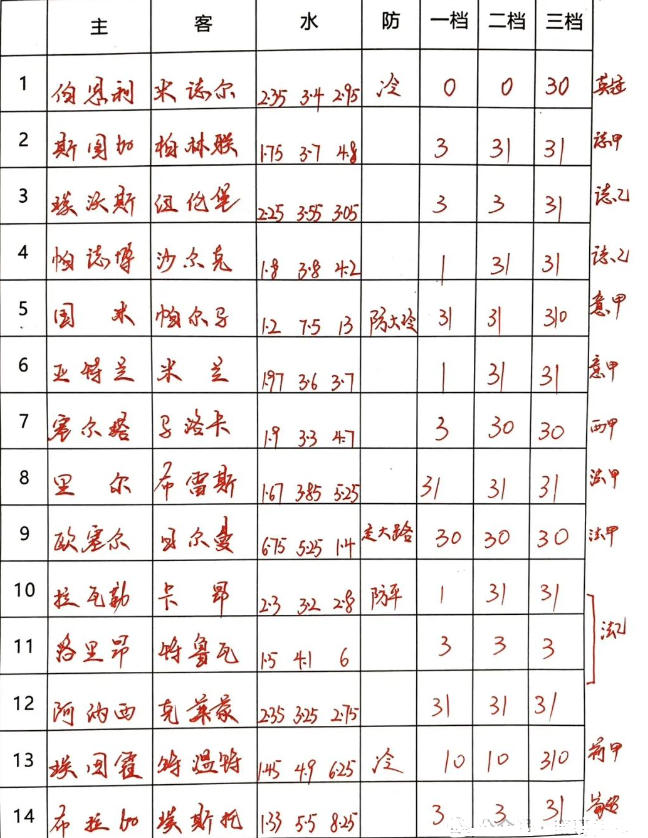 主 客 水 防 一档 二档 三档
1 伯恩利 米德尔 2.35 3.4 2.95 冷 0 0 30 英冠
2 斯图加 柏林联 1.75 3.7 4.8 3 31 31 德甲
3 埃沃斯 纽伦堡 2.25 3.55 3.05 3 3 31 德乙
4 帕德博 沙尔克 1.8 3.8 4.2 1 31 31 德乙
5 国米 帕尔马 1.2 7.5 13 防大冷 31 31 310 意甲
6 亚特兰 米兰 1.97 3.6 3.7 1 31 31 意甲
7 塞尔塔 马洛卡 1.9 3.3 4.7 3 30 30 西甲
8 里尔 布雷斯 1.67 3.85 5.25 31 31 31 法甲
9 欧塞尔 日尔曼 6.75 5.25 1.4 走大路 30 30 30 法甲
10 拉瓦勒 卡昂 2.3 3.2 2.8 防平 1 31 31
11 洛里昂 特鲁瓦 1.5 4.1 6 3 3 3 法乙
12 阿纳西 克莱蒙 2.35 3.25 2.75 31 31 31
13 埃因霍 特温特 1.45 4.9 6.25 冷 10 10 310 荷甲
14 布拉加 埃斯托 1.33 5.5 8.25 3 3 31